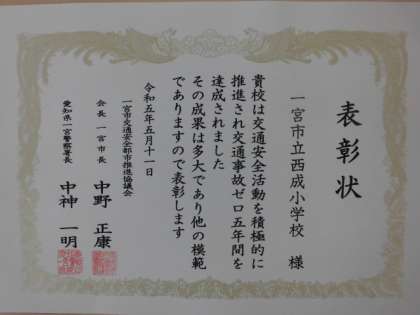 表彰状
一宮市立西成小学校 様
貴校は交通安全活動を積極的に
推進され交通事故ゼロ五年間を
達成されました
その成果は多大であり他の模範
でありますので表彰します
令和五年五月十一日
一宮市交通安全都市推進協議会
会長 一宮市長 中野 正康
愛知県一宮警察署長 中神 一明